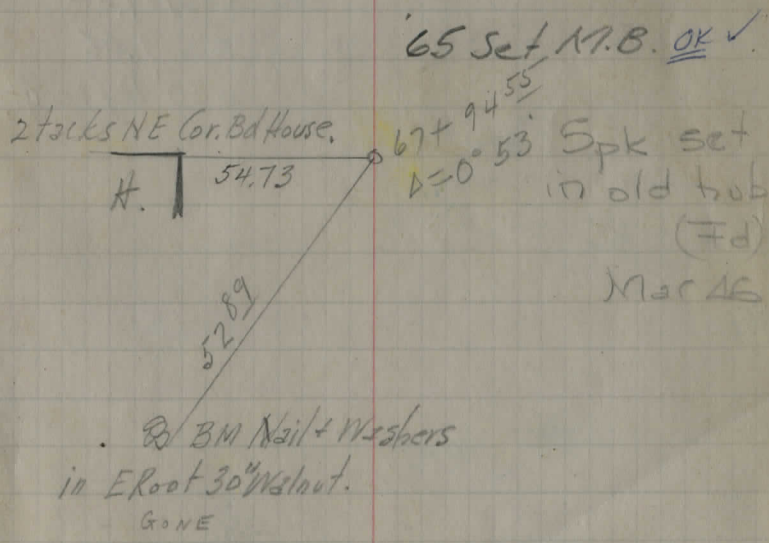 '65 Set M.B. OK ✓
2 tacks NE Cor. Bd House.
67+94 55
Δ=0°53'
Spk set
in old hub
(Fd)
Mar 46
54.73
H.
52 89
BM Nail + Washers
in E Root 30" Walnut.
GONE